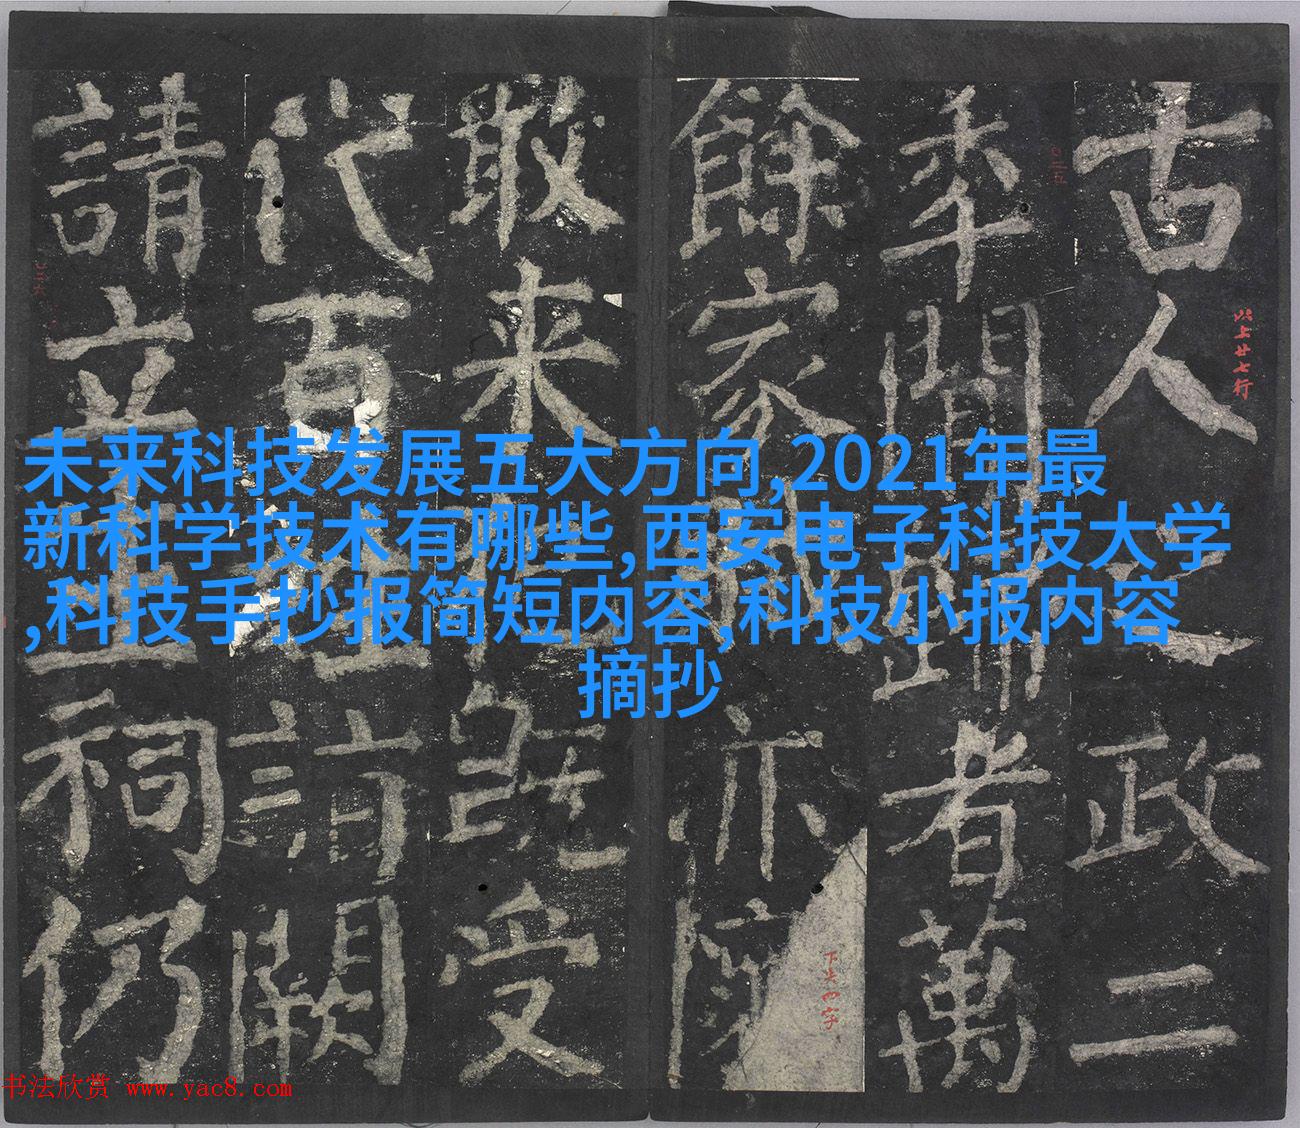 古人之政二
年間歸者萬
餘家賊亦懷
敢来犯既受
代百姓詣闕
請立生祠仍
以上廿七行
下失四字
未来科技发展五大方向,2021年最
新科学技术有哪些,西安电子科技大学
,科技手抄报简短内容,科技小报内容
摘抄
书法欣赏 www.yac8.com